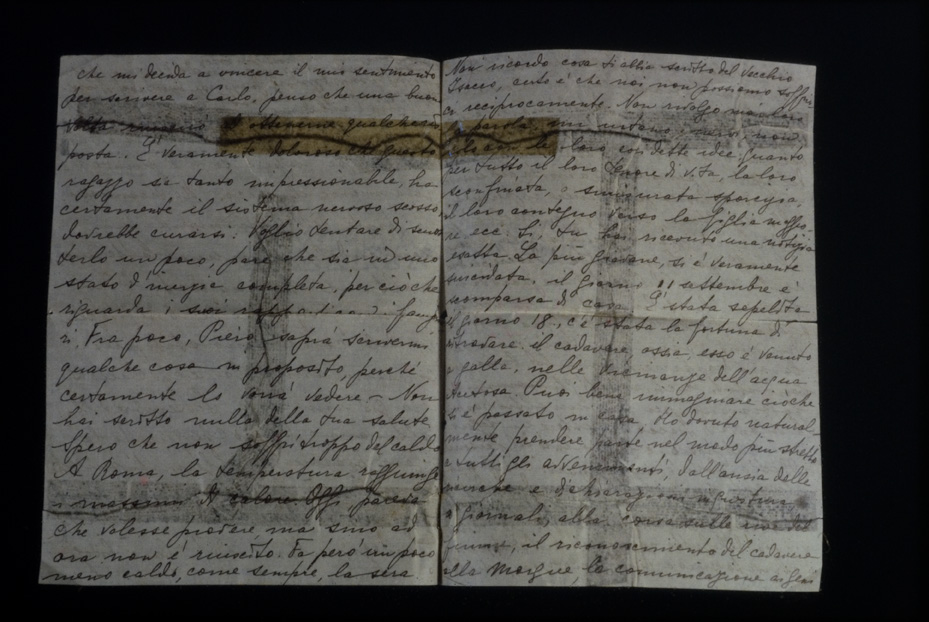 che mi decida a vincere il mio sentimento
per scrivere a Carlo, penso che una buon
di ottenerne qualche
posta. E' veramente doloroso che questo
ragazzo sia tanto impressionabile, ha
certamente il sistema nervoso scosso,
dovrebbe curarsi. Voglio tentare di
terlo un poco, pare che sia in uno
stato d'inerzia completa, per ciò che
riguarda i suoi
Fra poco, Piero saprà scrivermi
qualche cosa in proposito, perché
certamente lo vorrà vedere - Non
hai scritto nulla della tua salute
Spero che non soffri troppo del caldo
A Roma, la temperatura raggiunge
i massimi di calore Oggi, pareva
che volesse piovere ma sino ad
ora non è riuscito. Fa però un poco
meno caldo, come sempre, la sera
Non ricordo cosa ti abbia scritto del Vecchio
certo è che noi non possiamo
reciprocamente. Non rivolgo
parola
loro idee. Quanto
per tutto il loro tenore di vita, la loro
sconfinata, o
il loro contegno verso la figlia
ecc. Si, tu hai ricevuto una notizia
esatta La più giovane, si è veramente
suicidata. il giorno 11 settembre è
scomparsa di casa E' stata sepolta
il giorno 18, c'è stata la fortuna di
ritrovare, il cadavere ossia, esso è venuto
a galla, nelle vicinanze dell'acqua
Puoi bene immaginare ciò che
si è passato in casa, Ho dovuto natural-
mente prendere parte nel modo più stretto
a tutti gli avvenimenti, dall'ansia delle
ricerche e dichiarazioni in questura
ai giornali, alla corsa sulle rive del
fiume, il riconoscimento del cadavere
alla Morgue, la comunicazione ai